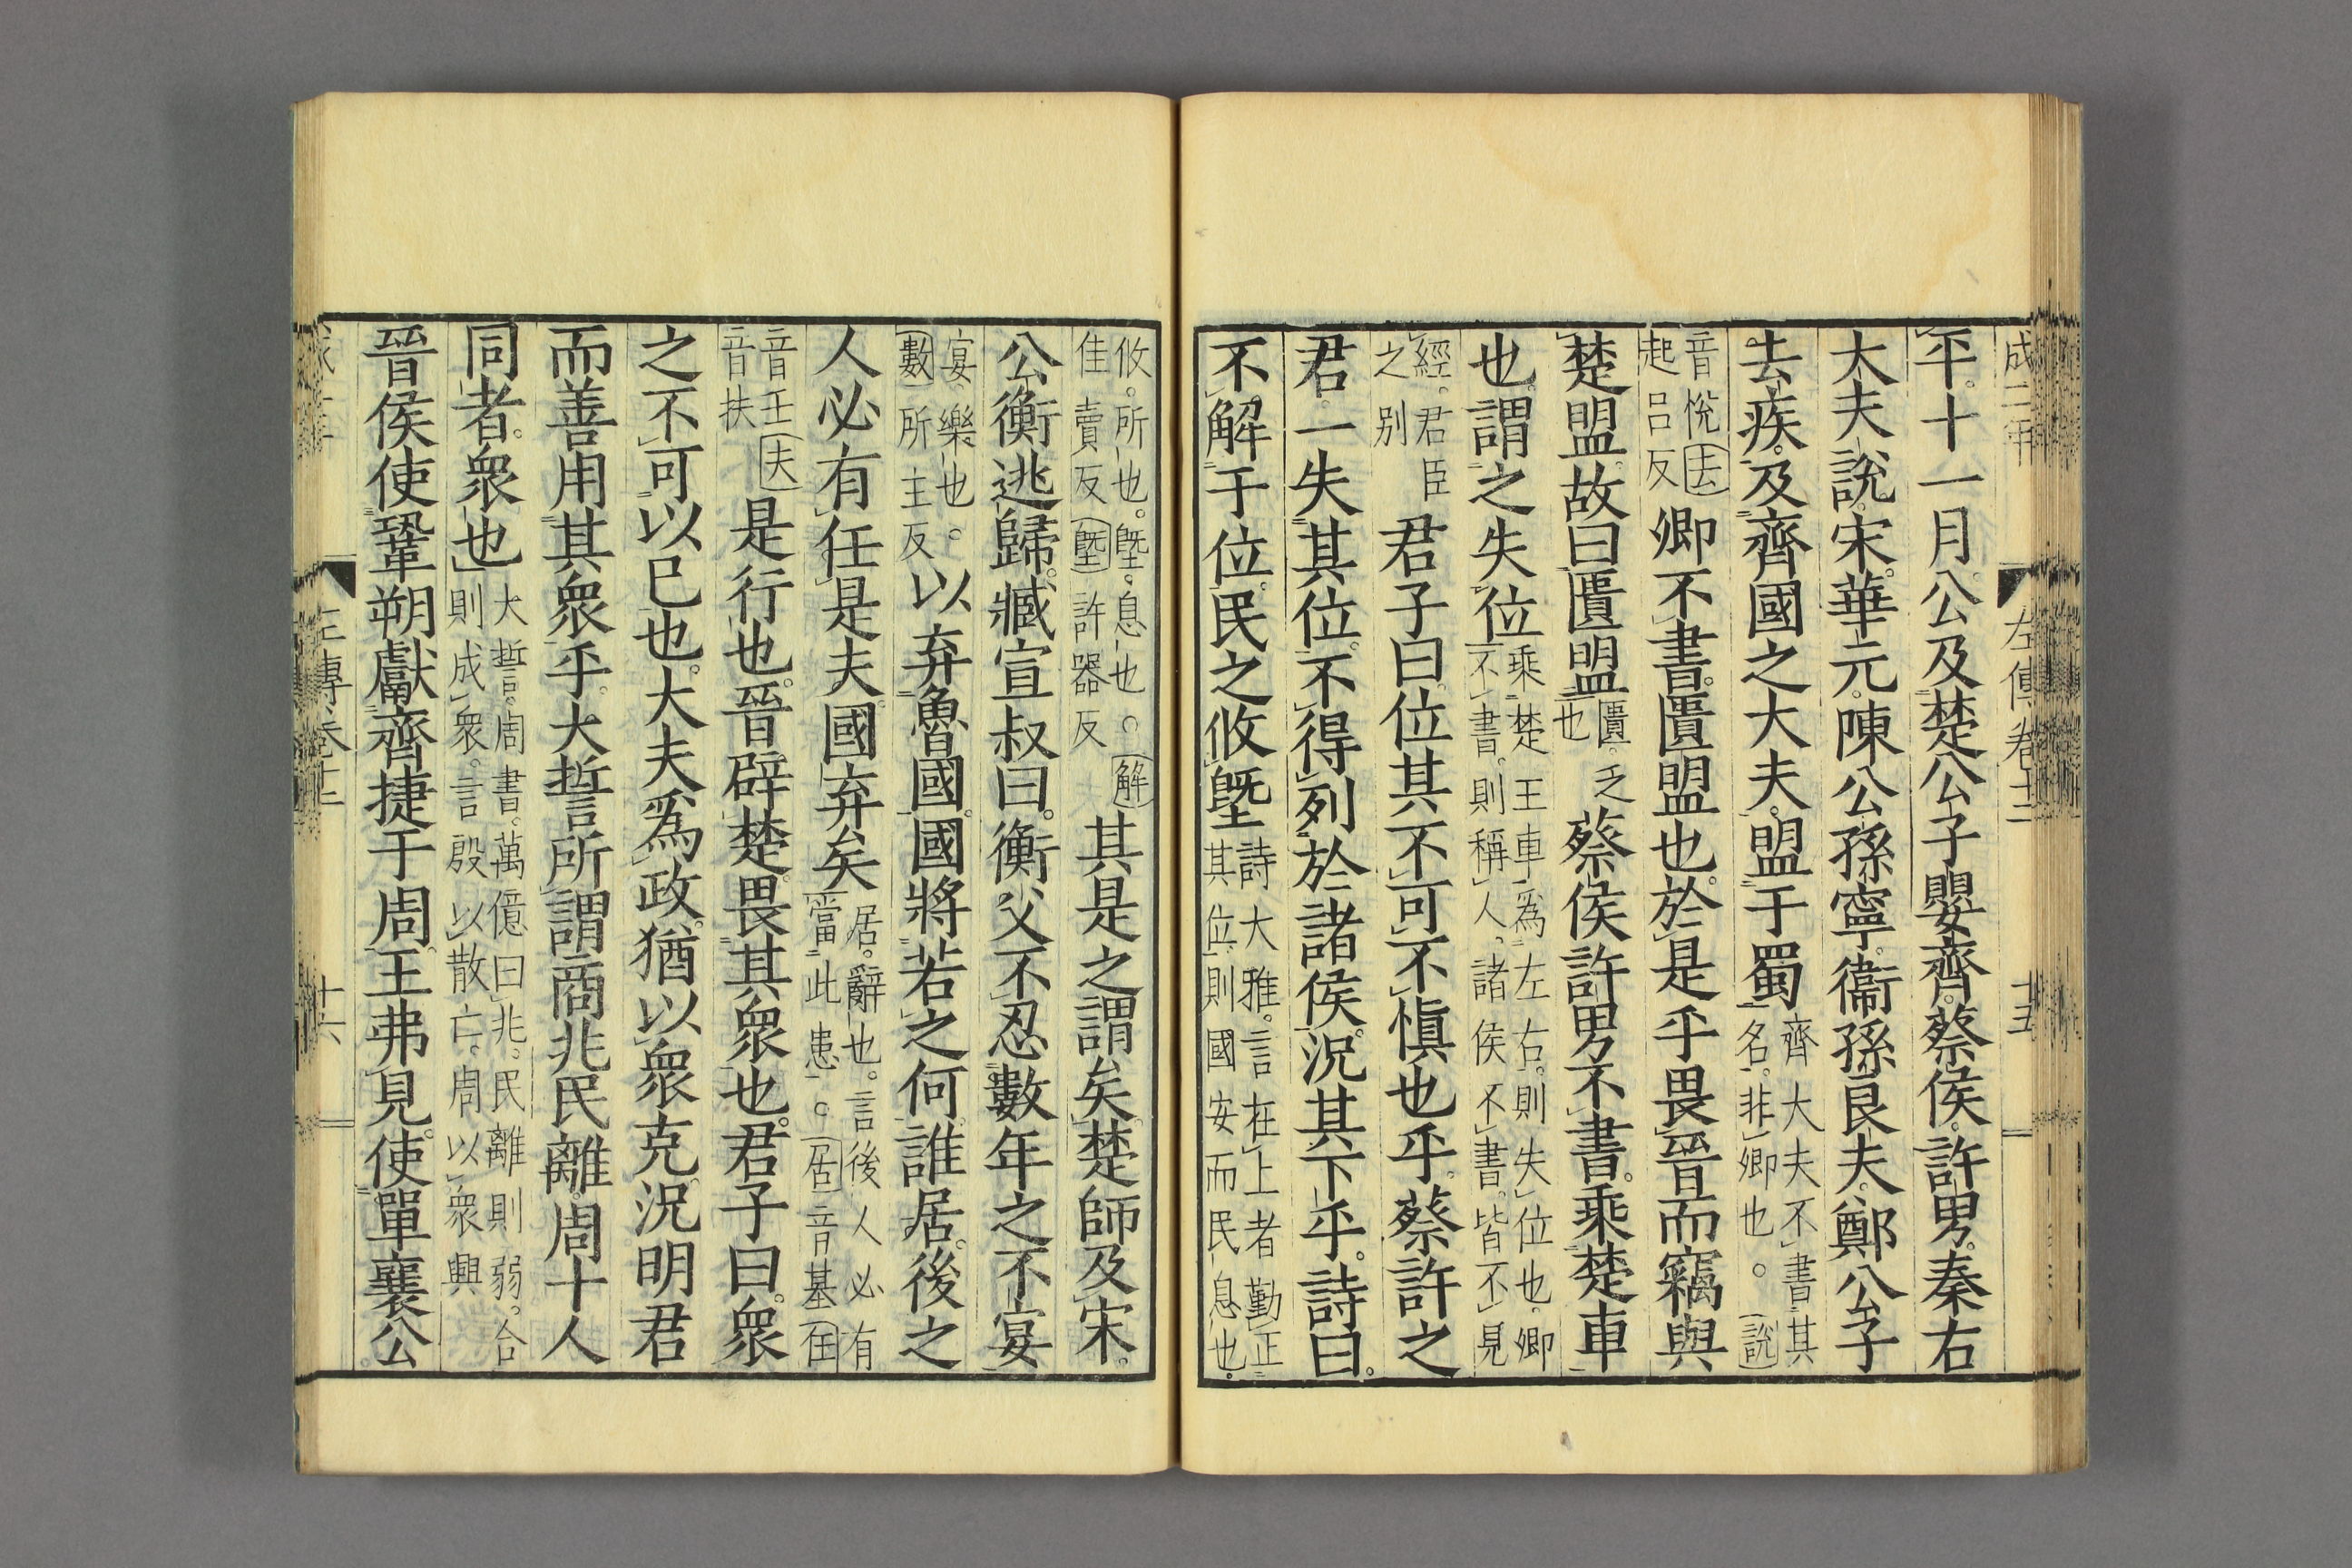 成二年 左傳卷十二 十五
平。十一月。公及楚公子嬰齊。蔡侯。許男。秦右
大夫說。宋華元。陳公孫寧。衞孫良夫。鄭公子
去疾。及齊國之大夫。盟于蜀齊大夫不書其名。非卿也。說
音悅去起呂反卿不書。匱盟也。於是乎畏晉而竊與
楚盟。故曰匱盟匱。乏也蔡侯許男不書。乘楚車
也。謂之失位乘楚王車爲左右。則失位也。卿不書。則稱人。諸侯不書。皆不見
經。君臣之別君子曰。位其不可不愼也乎。蔡許之
君。一失其位。不得列於諸侯。況其下乎。詩曰。
不解于位。民之攸塈詩大雅。言在上者勤正其位。則國安而民息也。
攸。所也。塈。息也。○解佳賣反塈許器反其是之謂矣。楚師及宋。
公衡逃歸。臧宣叔曰。衡父不忍數年之不宴
宴。樂也。○數所主反以弃魯國。國將若之何。誰居。後之
人必有任是夫。國弃矣居。辭也。言後人必有當此患。○居音基任
音壬夫音扶是行也。晉辟楚。畏其衆也。君子曰。衆
之不可以已也。大夫爲政。猶以衆克。況明君
而善用其衆乎。大誓所謂商兆民離。周十人
同者。衆也大誓。周書。萬億曰兆。民離則弱。合則成衆。言殷以散亡。周以衆興
晉侯使鞏朔獻齊捷于周。王弗見。使單襄公
十六